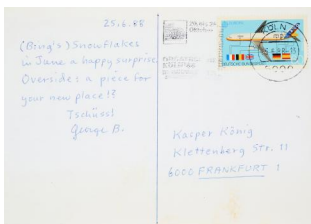 25.6.88
(Bing's) Snowflakes
in June a happy surprise
Oversides a piece for
your new place!?
Tschüss!
George B.
KÖLN
5000
Kasper König
Klettenberg Str. 11
6000 FRANKFURT 1